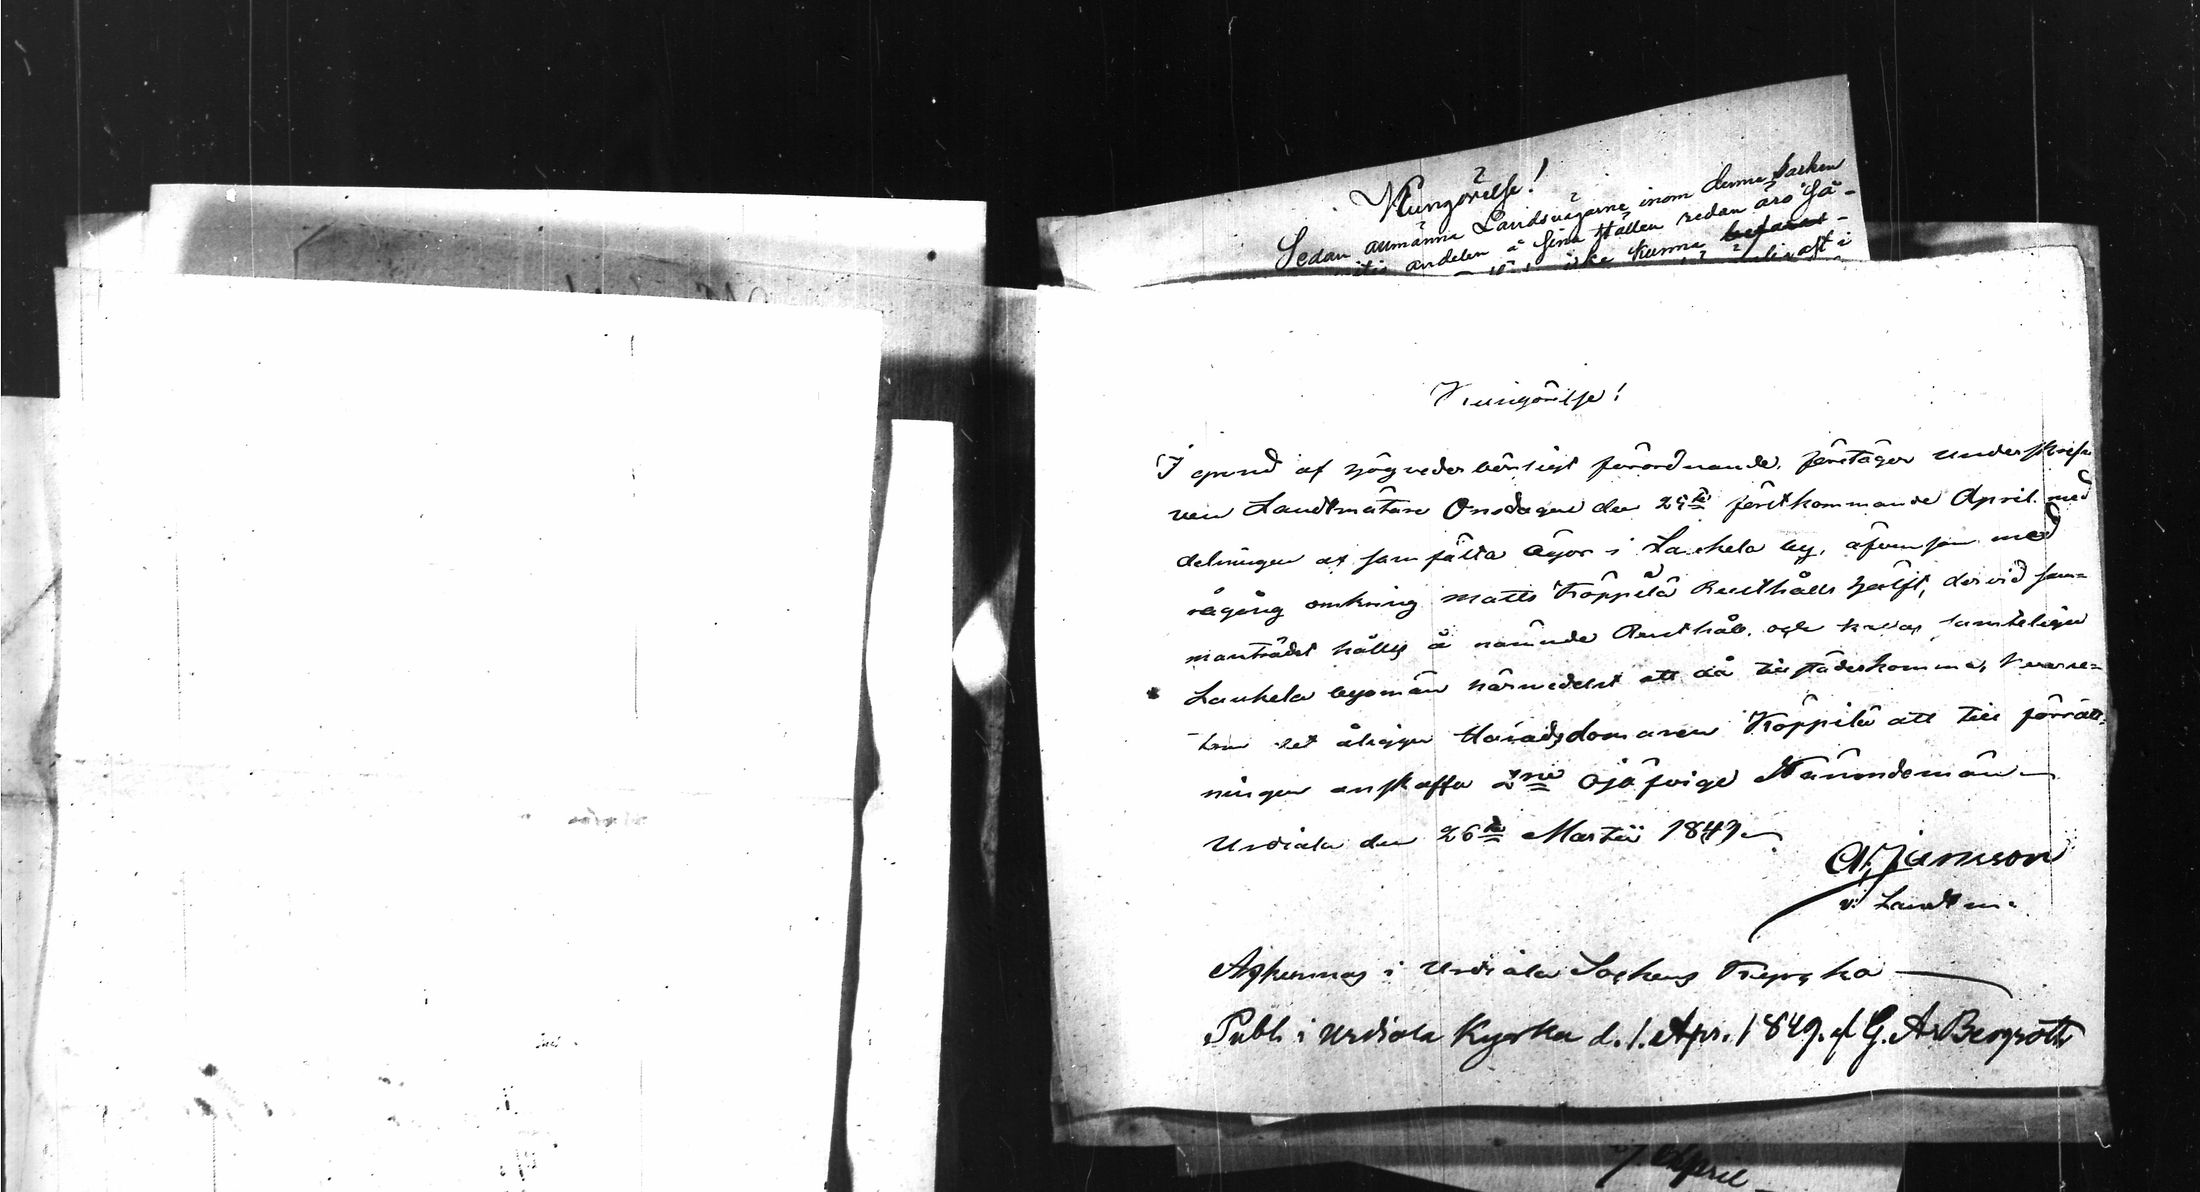 Kungörelse!
Sedan allmänna Landsvägarne inom denna Socken
andelen å sina ställen redan äro så-
icke kunna befaras
Kungörelse!
I grund af högvederbörligt förordnande, företager underskref-
ven Landtmätare Onsdagen den 25te förstkommande April med
delningen af samfälta ägor i Laukela by, äfvensom med
rågång omkring Matts Köppilä Rusthålls hälft, dervid sam-
manträdet hålles å nämnde Rusthåll och kallas samtelige
Laukela byamän härmedelst att då tillstädeskomma,
det åligger Häradsdomaren Köppilä att till förrätt-
ningen anskaffa 2ne ojäfvige Nämndemän
Urdiala den 26te Martii 1849
v. Landtm.
Afkunnas i Urdiala Sockens Kyrka
Publ. i Urdiala Kyrka d. 1. Apr. 1849. af G. A. Bergroth
7. April